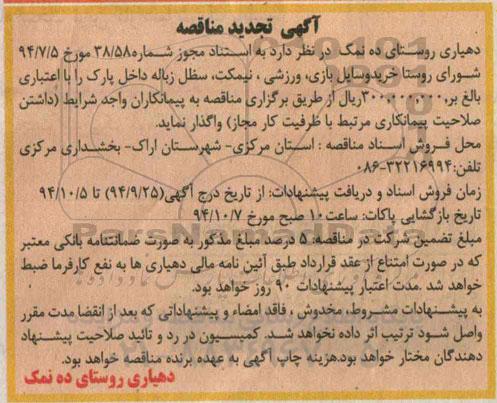 آگهی تجدید مناقصه
دهیاری روستای ده نمک در نظر دارد به استناد مجوز شماره۳۸/۵۸ مورخ ۹۴/۷/۵
شورای روستا خریدوسایل بازی، ورزشی ، نیمکت، سطل زباله داخل پارک را با اعتباری
بالغ بر,۳۰۰,۰۰۰,۰۰۰ریال از طریق برگزاری مناقصه به پیمانکاران واجد شرایط (داشتن
صلاحیت پیمانکاری مرتبط با ظرفیت کار مجاز) واگذار نماید.
محل فروش اسناد مناقصه : استان مرکزی- شهرستان اراک- بخشداری مرکزی
تلفن:۳۲۲۱۶۹۹۴-۰۸۶
زمان فروش اسناد و دریافت پیشنهادات: از تاریخ درج آگهی(۹۴/۹/۲۵) تا ۹۴/۱۰/۵
تاریخ بازگشایی پاکات: ساعت۱۰ صبح مورخ ۹۴/۱۰/۷
مبلغ تضمین شرکت در مناقصه: ۵ درصد مبلغ مذکور به صورت ضمانتنامه بانکی معتبر
که در صورت امتناع از عقد قرارداد طبق آئین نامه مالی دهیاری ها به نفع کارفرما ضبط
خواهد شد .مدت اعتبار پیشنهادات ۹۰ روز خواهد بود.
به پیشنهادات مشروط، مخدوش ، فاقد امضاء و پیشنهاداتی که بعد از انقضا مدت مقرر
واصل شود ترتیب اثر داده نخواهد شد. کمیسیون در رد و تائید صلاحیت پیشنهاد
دهندگان مختار خواهد بود.هزینه چاپ آگهی به عهده برنده مناقصه خواهد بود.
دهیاری روستای ده نمک
ParsNamadData